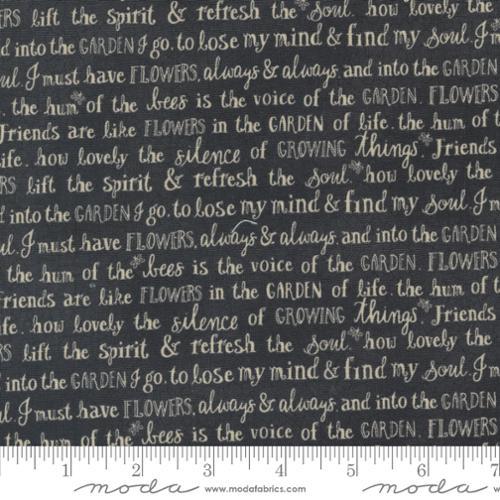 RS lift the spirit & refresh the soul how lovely the
d into the GARDEN I go. to lose my mind & find my soul. I m
ul. I must have FLOWERS, always & always, and into the GARDEN
. the hum of the bees is the voice of the GARDEN. FLOWERS
Friends are like FLOWERS in the GARDEN of life. the hum of t
ife. how lovely the silence of GROWING things. Friends
RS lift the spirit & refresh the soul how lovely the
d into the GARDEN I go. to lose my mind & find my soul. I m
ul. I must have FLOWERS, always & always, and into the GARDEN
. the hum of the bees is the voice of the GARDEN. FLOWERS
Friends are like FLOWERS in the GARDEN of life. the hum of t
ife. how lovely the silence of GROWING things. Friends
RS lift the spirit & refresh the soul how lovely the
into the GARDEN I go. to lose my mind & find my soul. I m
l. I must have FLOWERS, always & always, and into the GARDEN
the hum of the bees is the voice of the GARDEN. FLOWERS
1 2 3 4 5 6 7
moda www.modafabrics.com moda